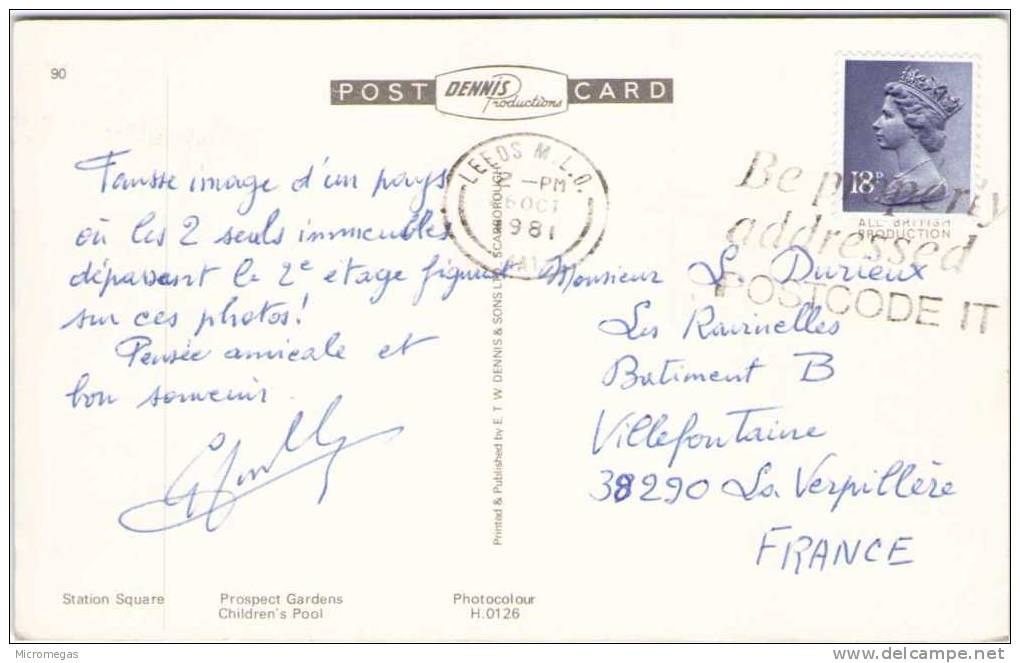 90
POST DENNIS Productions CARD
18P
ALL-BRITISH
PRODUCTION
LEEDS M.L.O.
12 -PM
6 OCT
1981
Be properly
addressed
POSTCODE IT
Fausse image d'un pays
où les 2 seuls immeubles
dépassant le 2e étage figurent
sur ces photos!
Pensée amicale et
bon souvenir.
Monsieur L. Durieux
Les Ravinelles
Batiment B
Villefontaine
38290 La Verpillère
FRANCE
Printed & Published by E. T. W. DENNIS & SONS LTD., SCARBOROUGH
Station Square
Prospect Gardens
Children's Pool
Photocolour
H.0126
Micromegas
delcampe.net